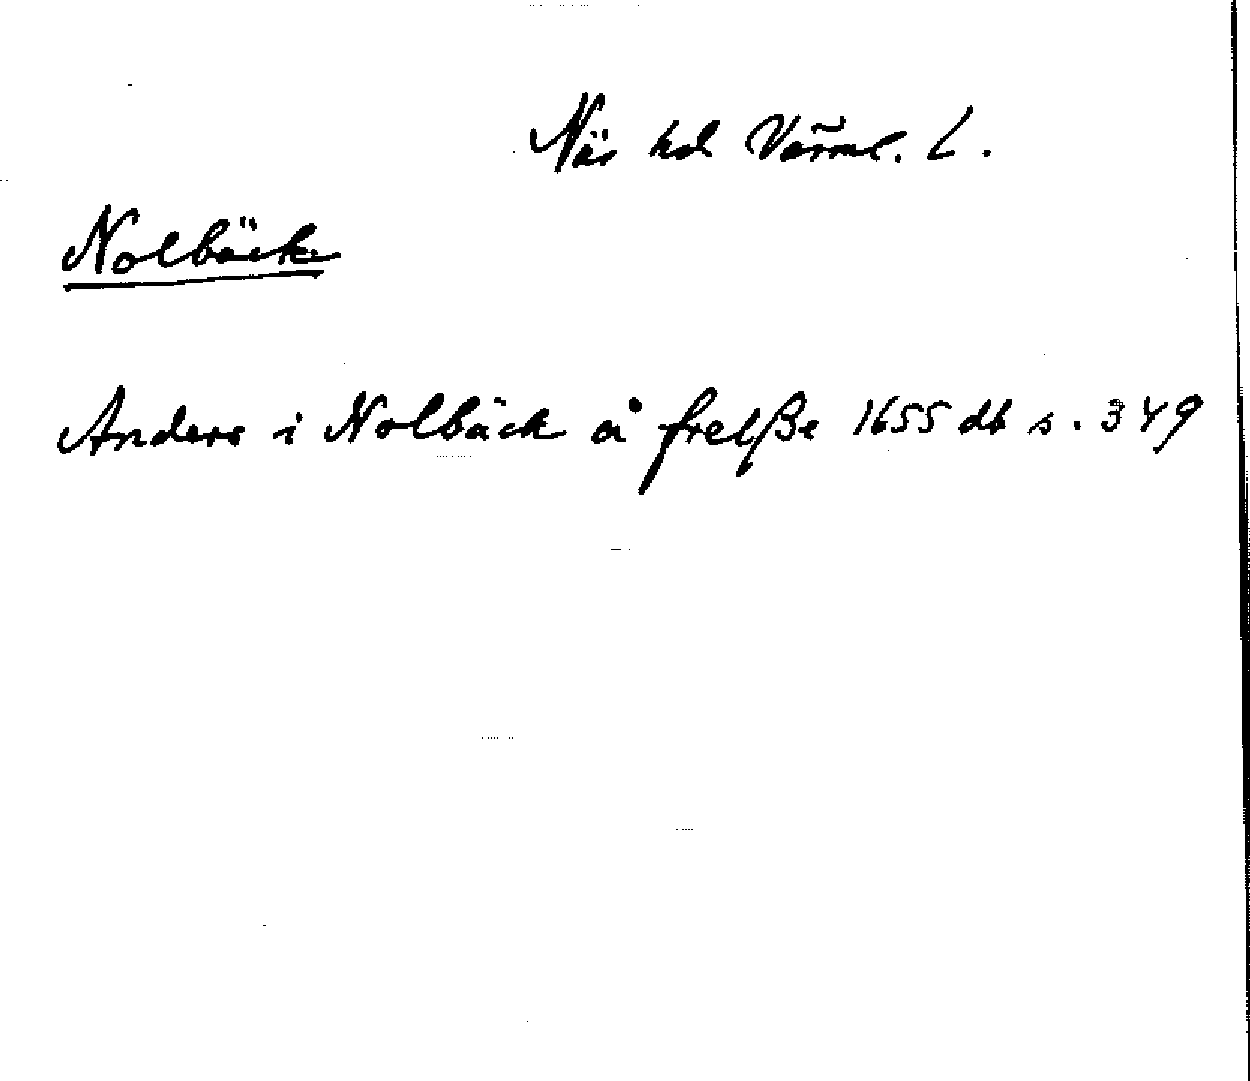 Näs hd Värml. L.
Nolbäck
Anders i Nolbäck å frelße 1655 db s. 349